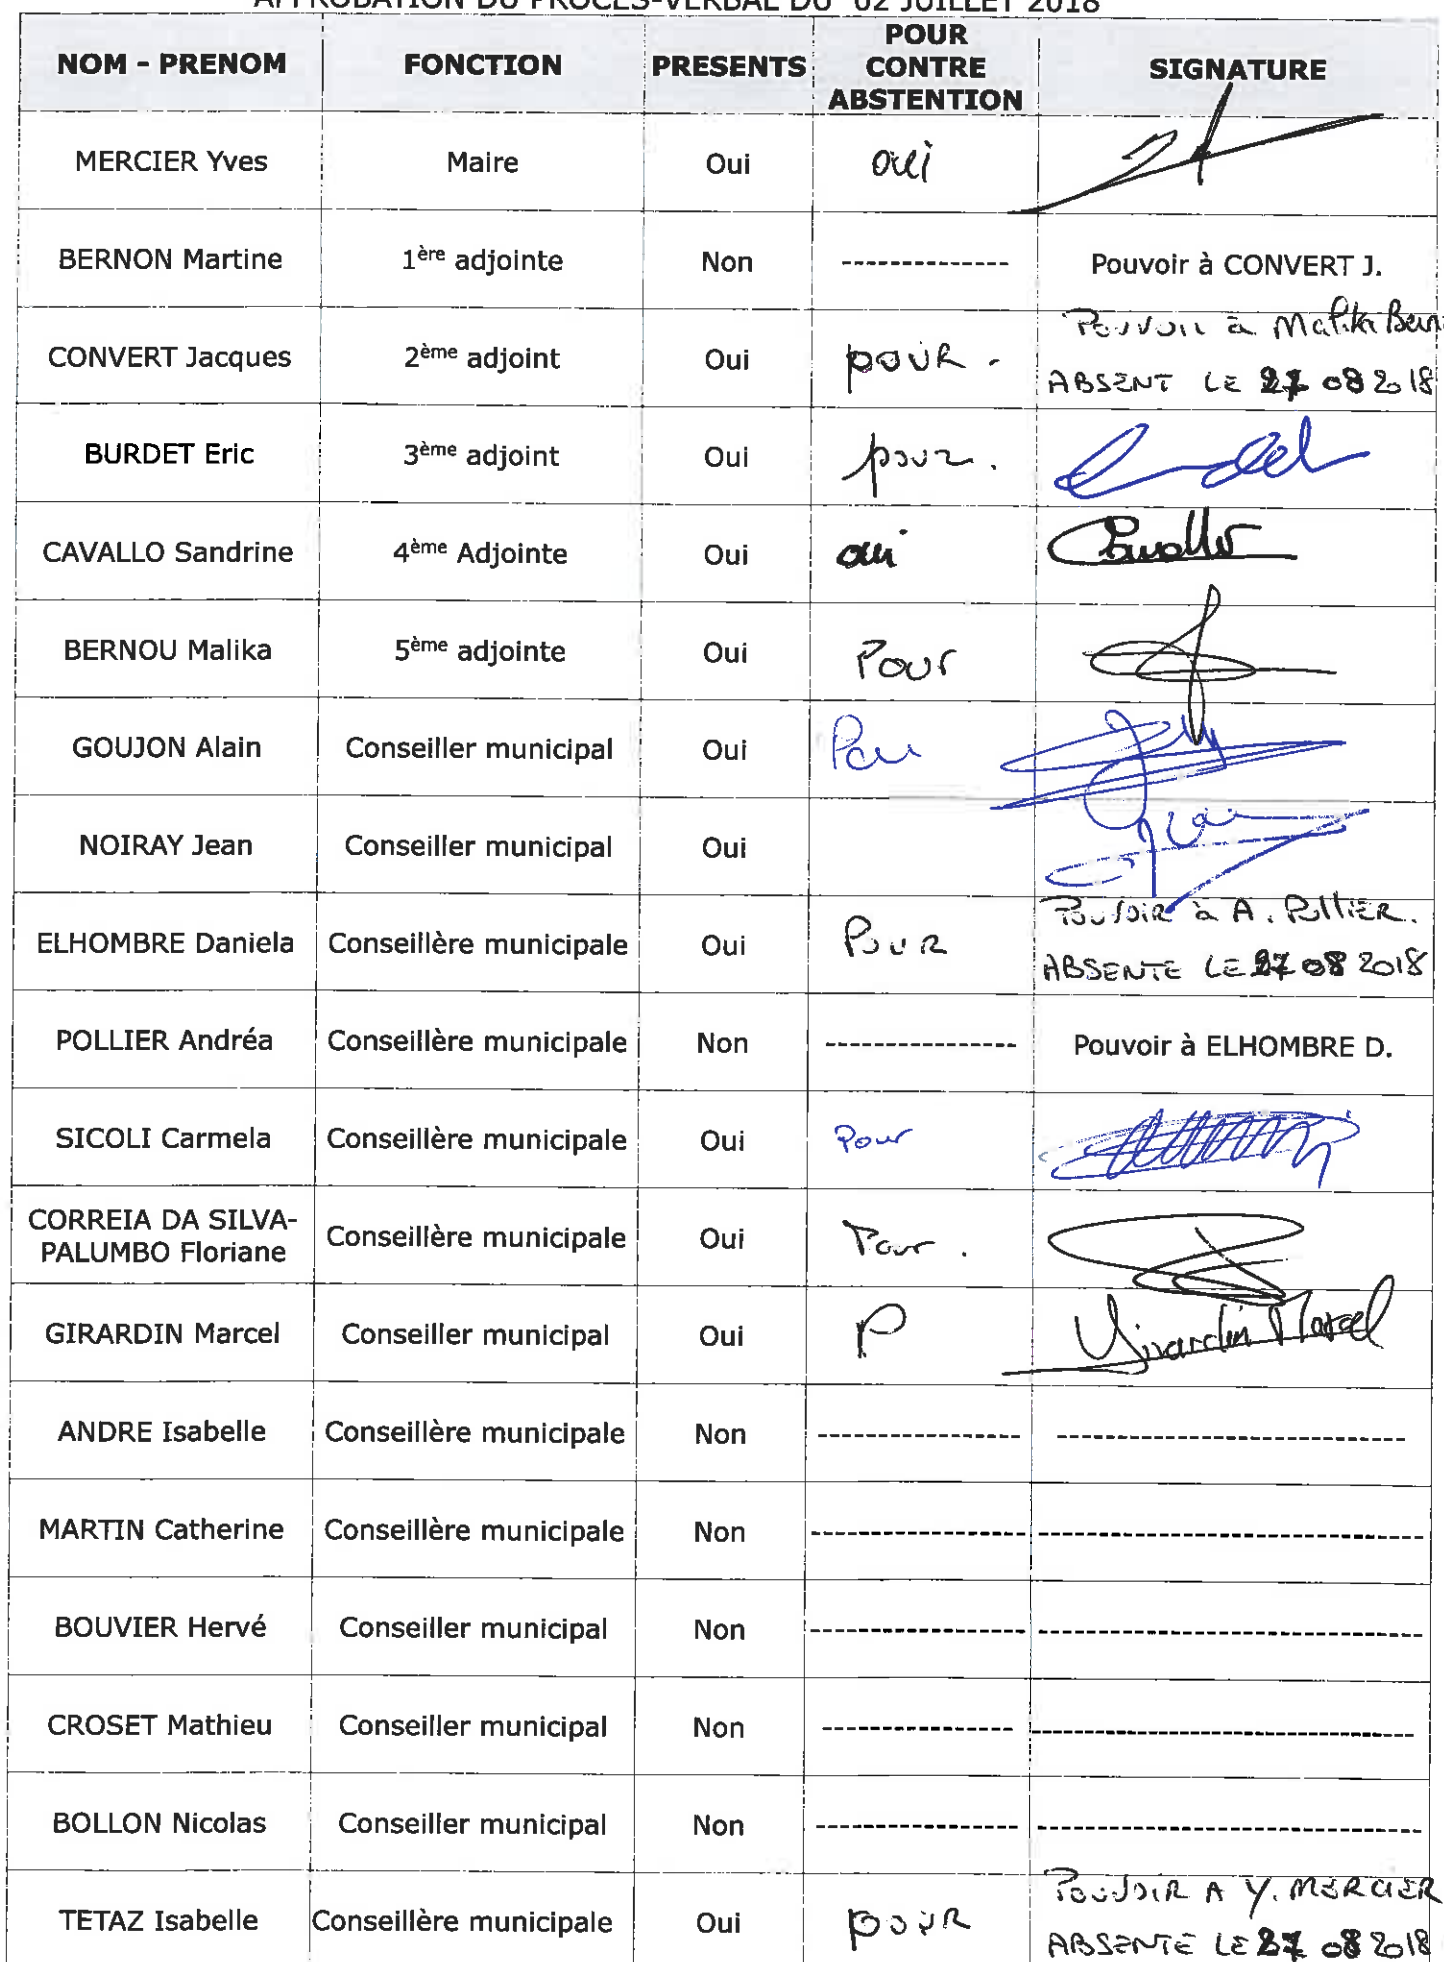 APPROBATION DU PROCES-VERBAL DU 02 JUILLET 2018
NOM - PRENOM FONCTION PRESENTS POUR CONTRE ABSTENTION SIGNATURE
MERCIER Yves Maire Oui oui
BERNON Martine 1ère adjointe Non -------------- Pouvoir à CONVERT J.
CONVERT Jacques 2ème adjoint Oui POUR. Pouvoir à Malika Bern
ABSENT LE 27 08 2018
BURDET Eric 3ème adjoint Oui pour.
CAVALLO Sandrine 4ème Adjointe Oui oui Cavallo
BERNOU Malika 5ème adjointe Oui Pour
GOUJON Alain Conseiller municipal Oui Pour
NOIRAY Jean Conseiller municipal Oui
ELHOMBRE Daniela Conseillère municipale Oui POUR POUVOIR à A. POLLIER.
ABSENTE LE 27 08 2018
POLLIER Andréa Conseillère municipale Non --------------- Pouvoir à ELHOMBRE D.
SICOLI Carmela Conseillère municipale Oui Pour
CORREIA DA SILVA-
PALUMBO Floriane Conseillère municipale Oui Pour.
GIRARDIN Marcel Conseiller municipal Oui P Girardin Marcel
ANDRE Isabelle Conseillère municipale Non ---------------- ----------------------------
MARTIN Catherine Conseillère municipale Non ----------------- -------------------------------
BOUVIER Hervé Conseiller municipal Non ----------------- -------------------------------
CROSET Mathieu Conseiller municipal Non --------------- -------------------------------
BOLLON Nicolas Conseiller municipal Non ---------------- -------------------------------
TETAZ Isabelle Conseillère municipale Oui POUR POUVOIR A Y. MERCIER
ABSENTE LE 27 08 2018